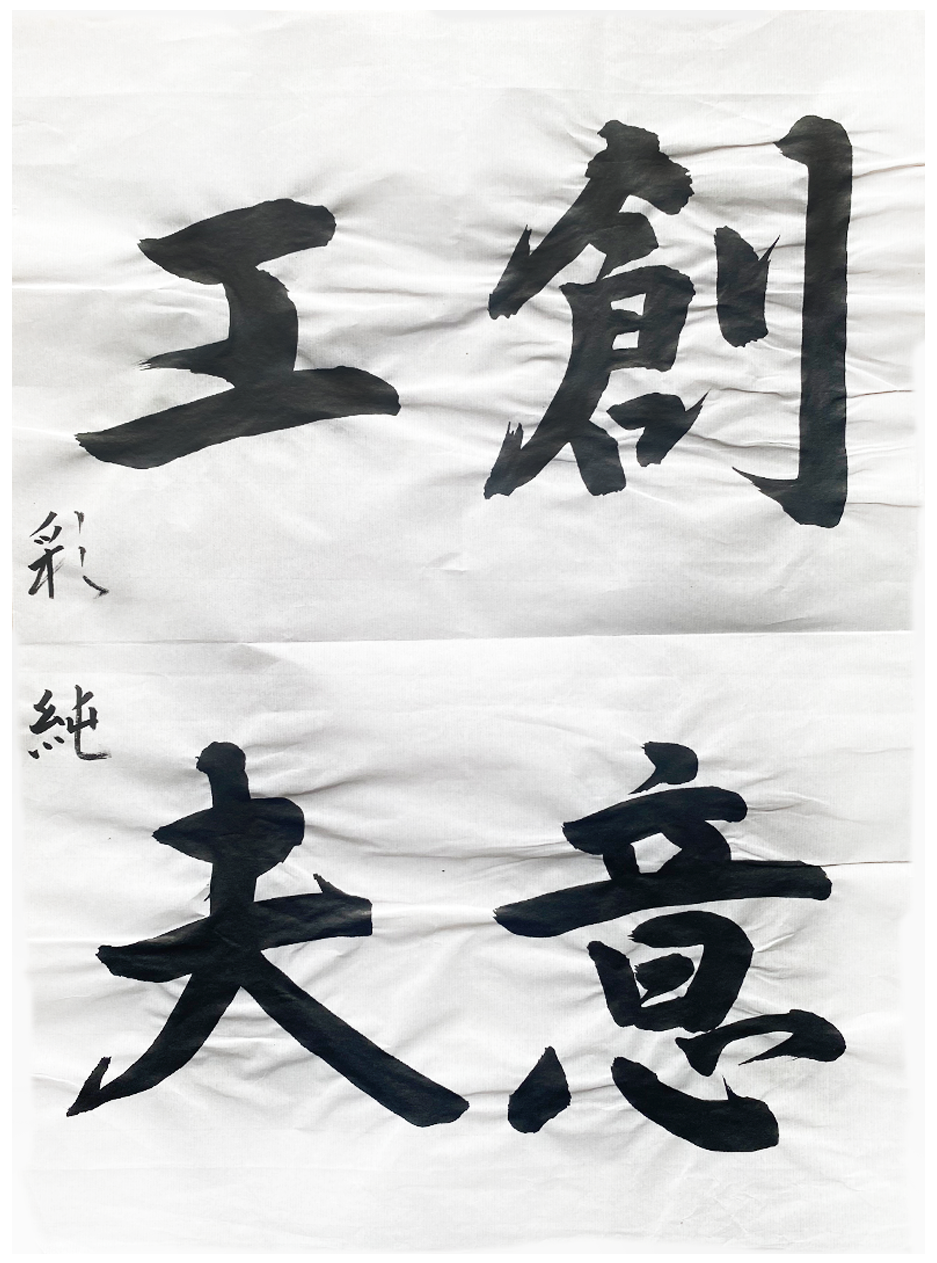 創意
工夫
彩純